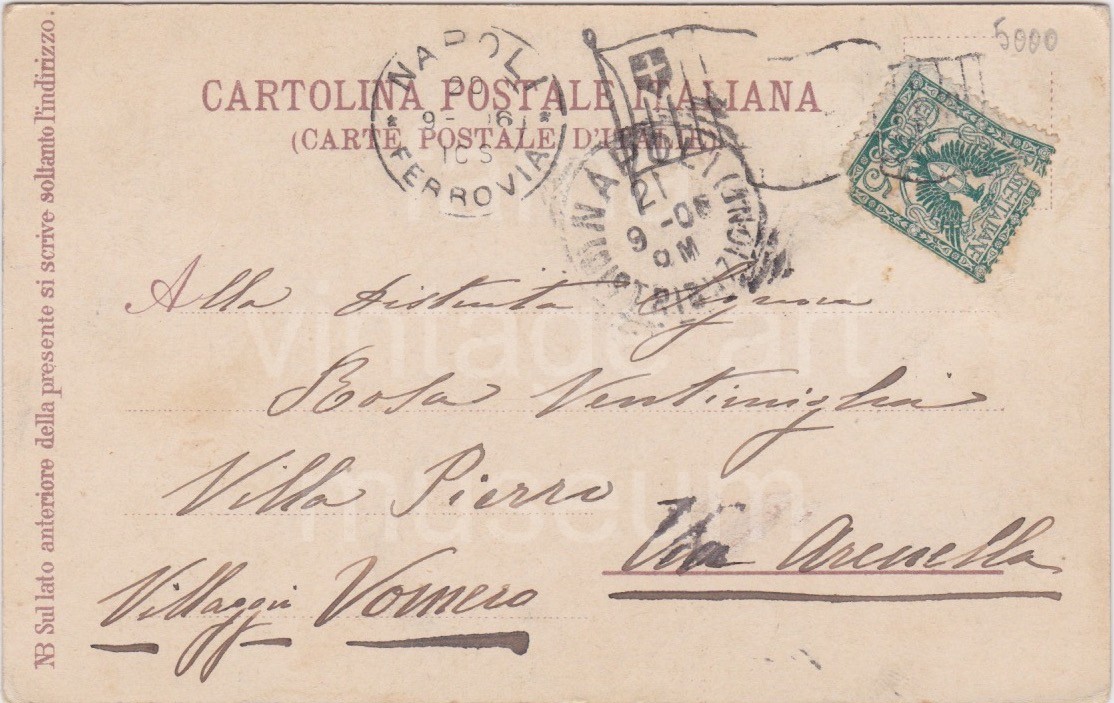 5000
CARTOLINA POSTALE ITALIANA
(CARTE POSTALE D'ITALIE)
NAPOLI
* 9- 06 *
FERROVIA
NAPOLI
21
9-06
DISTRIBUZIONE
POSTE ITALIANE
NB Sul lato anteriore della presente si scrive soltanto l'indirizzo.
Alla Distinta Signora
Rosa Ventimiglia
Villa Pierro
Via Arenella
Villaggio Vomero
vintage art
museum